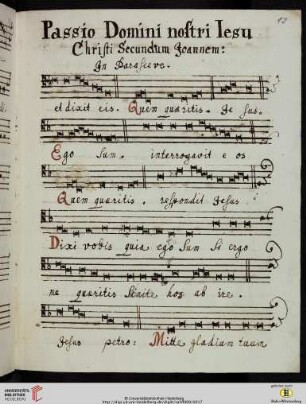 Passio Domini nostri Iesu
Christi Secundum Joannem:
In Parasceve.
et dixit eis. Quem quæritis. Je sus.
Ego Sum. interrogavit e os
Quem quæritis. respondit Jesus
Dixi vobis quia ego Sum Si ergo
me quæritis Sinite hos ab ire.
Jesus petro: Mitte gladium tuum
UNIVERSITÄTS-
BIBLIOTHEK
HEIDELBERG
© Universitätsbibliothek Heidelberg